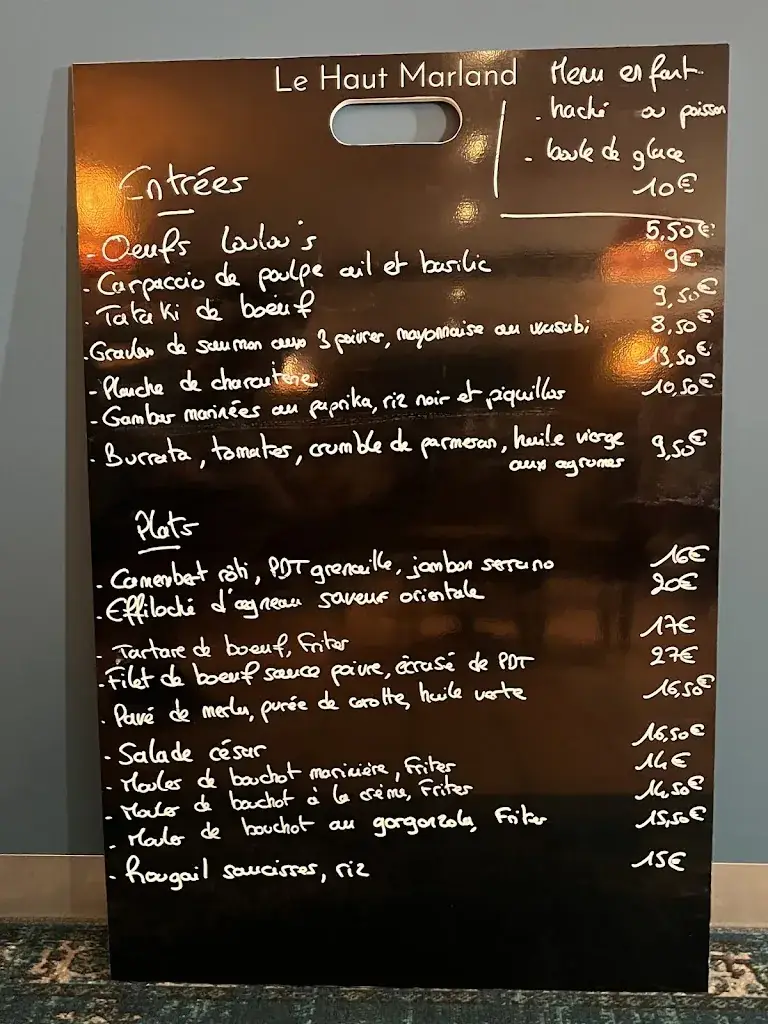 Le Haut Marland
Menu enfant
- haché ou poisson
- boule de glace
10€
Entrées
- Oeufs Loulou's 5,50€
- Carpaccio de poulpe ail et basilic 9€
- Tataki de boeuf 9,50€
- Gravlax de saumon aux 3 poivres, mayonnaise au wasabi 8,50€
- Planche de charcuterie 13,50€
- Gambas marinées au paprika, riz noir et piquillos 10,50€
- Burrata, tomates, crumble de parmesan, huile vierge 9,50€
aux agrumes
Plats
- Camembert rôti, PDT grenaille, jambon serrano 16€
- Effiloché d'agneau saveur orientale 20€
- Tartare de boeuf, Frites 17€
- Filet de boeuf sauce poivre, écrasé de PDT 27€
- Pavé de merlu, purée de carotte, huile verte 16,50€
- Salade césar 16,50€
- Moules de bouchot marinière, Frites 14€
- Moules de bouchot à la crème, Frites 14,50€
- Moules de bouchot au gorgonzola, Frites 15,50€
- Rougail saucisses, riz 15€